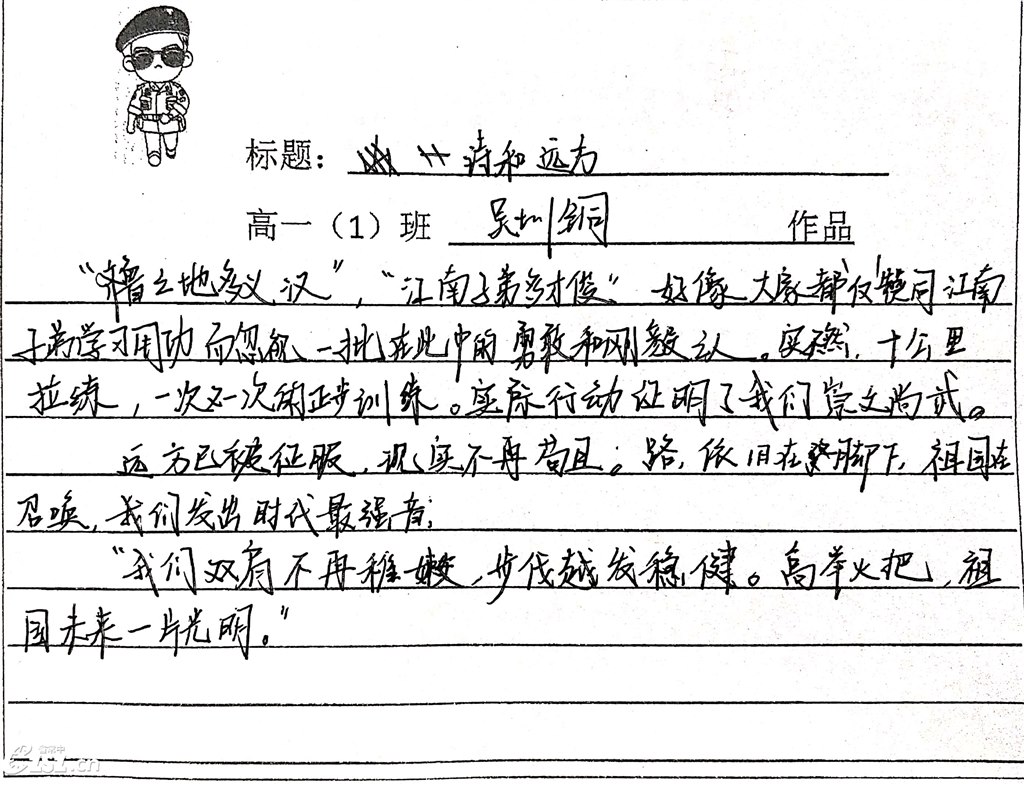 标题: 诗和远方
高一(1)班 吴圳铜 作品
“稽之地多义汉”,“江南子弟多才俊” 好像大家都仅赞同江南
子弟学习用功而忽视一批在此中的勇敢和刚毅之人。实然,十公里
拉练,一次又一次的正步训练。实际行动证明了我们崇文尚武。
远方已被征服,现实不再苟且;路,依旧在脚下,祖国在
召唤,我们发出时代最强音:
“我们双肩不再稚嫩,步伐越发稳健。高举火把,祖
国未来一片光明。”